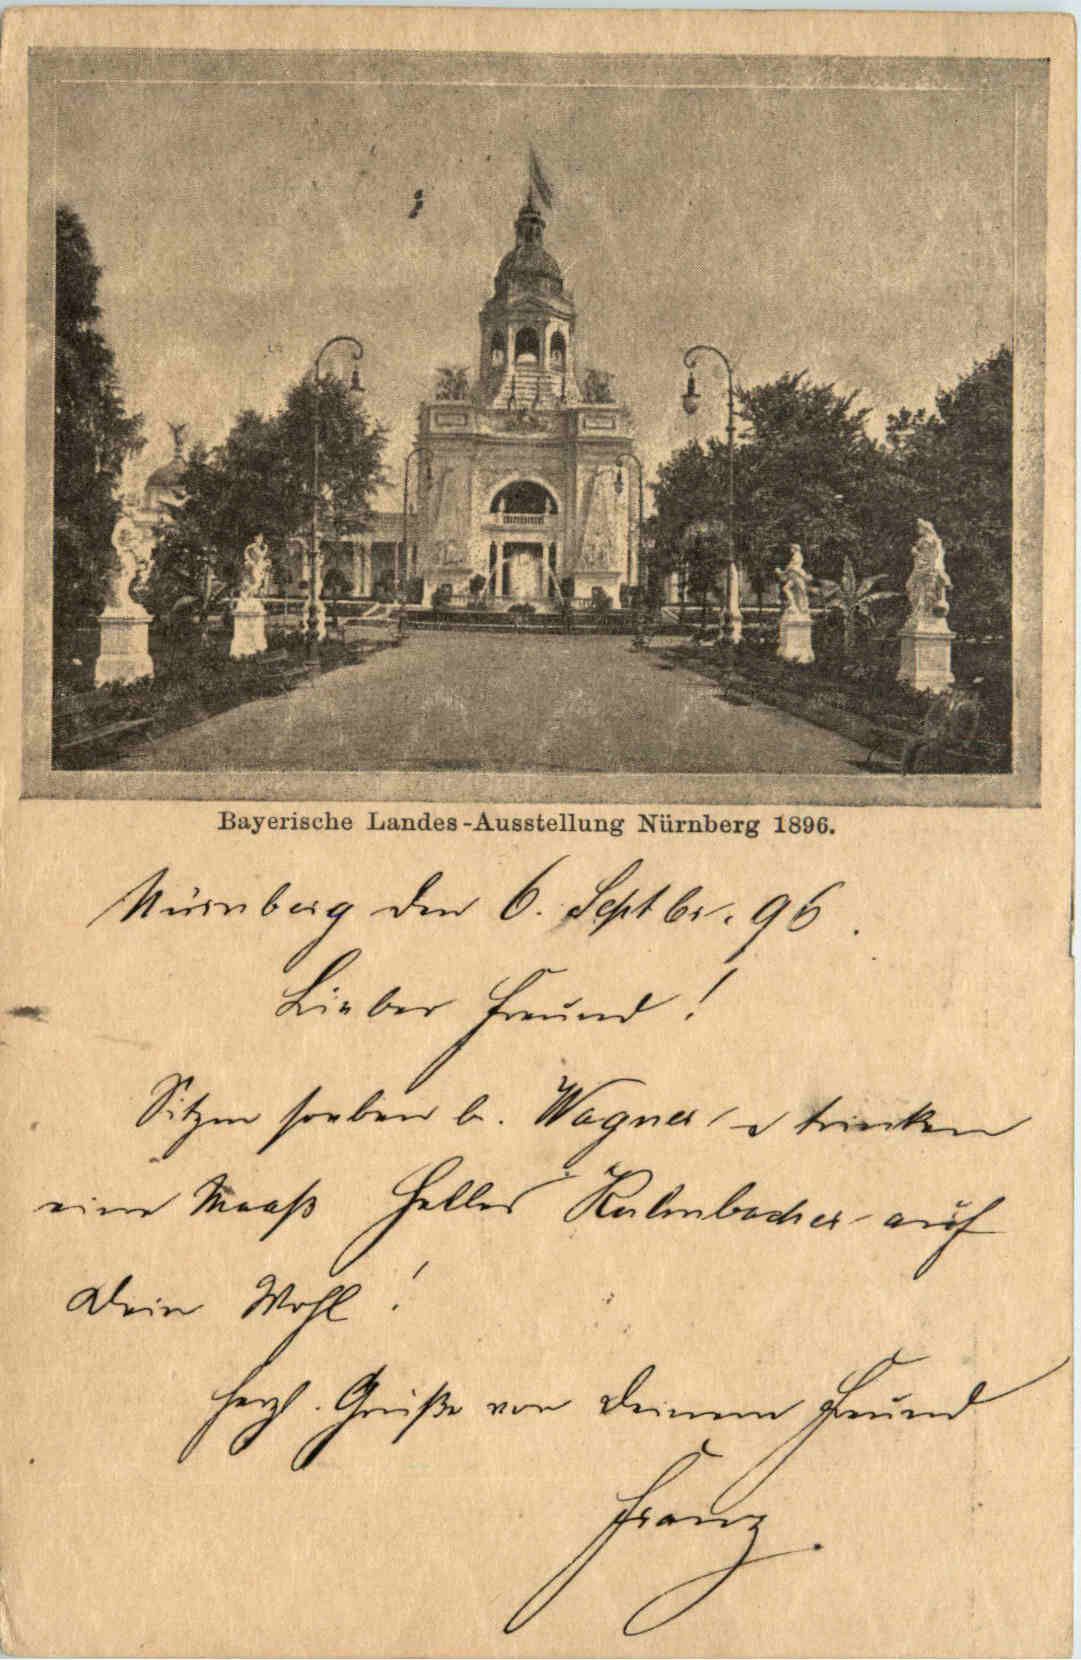 Bayerische Landes-Ausstellung Nürnberg 1896.
Nürnberg den 6. Septbr. 96.
Lieber Freund!
Sitzen soeben b. Wagner, u trinken
eine Maaß Helles Kulmbacher auf
Dein Wohl!
Herzl. Grüße von Deinem Freund
Franz.